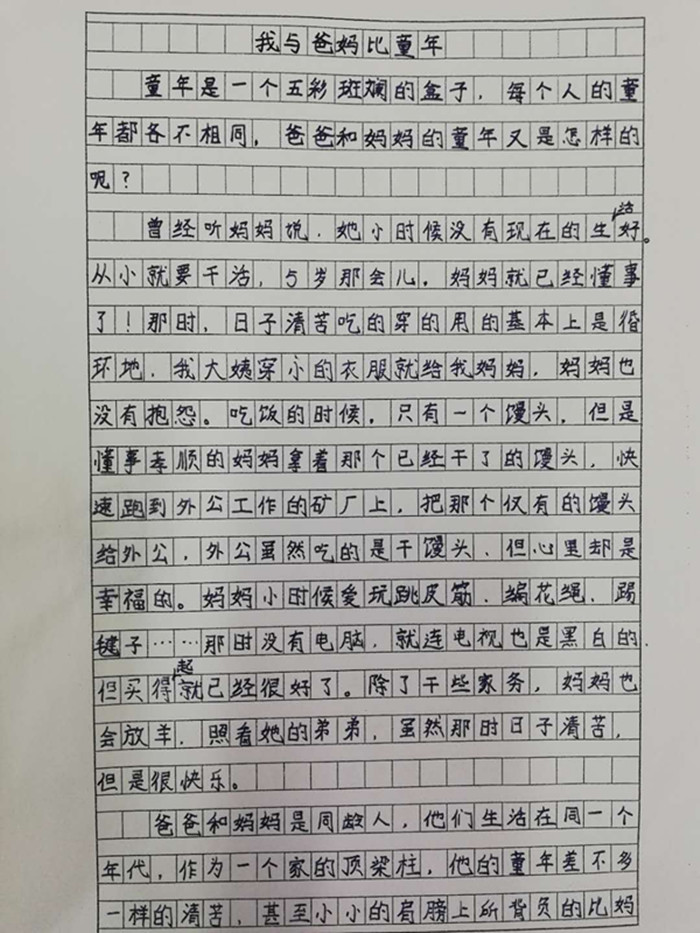 我与爸妈比童年
童年是一个五彩斑斓的盒子，每个人的童
年都各不相同，爸爸和妈妈的童年又是怎样的
呢？
曾经听妈妈说，她小时候没有现在的生活好。
从小就要干活，5岁那会儿，妈妈就已经懂事
了！那时，日子清苦吃的穿的用的基本上是循
环地，我大姨穿小的衣服就给我妈妈，妈妈也
没有抱怨。吃饭的时候，只有一个馒头，但是
懂事孝顺的妈妈拿着那个已经干了的馒头，快
速跑到外公工作的矿厂上，把那个仅有的馒头
给外公，外公虽然吃的是干馒头，但心里却是
幸福的。妈妈小时候爱玩跳皮筋、编花绳、踢
毽子……那时没有电脑，就连电视也是黑白的，
但买得起就已经很好了。除了干些家务，妈妈也
会放羊，照看她的弟弟，虽然那时日子清苦，
但是很快乐。
爸爸和妈妈是同龄人，他们生活在同一个
年代，作为一个家的顶梁柱，他的童年差不多
一样的清苦，甚至小小的肩膀上所背负的比妈